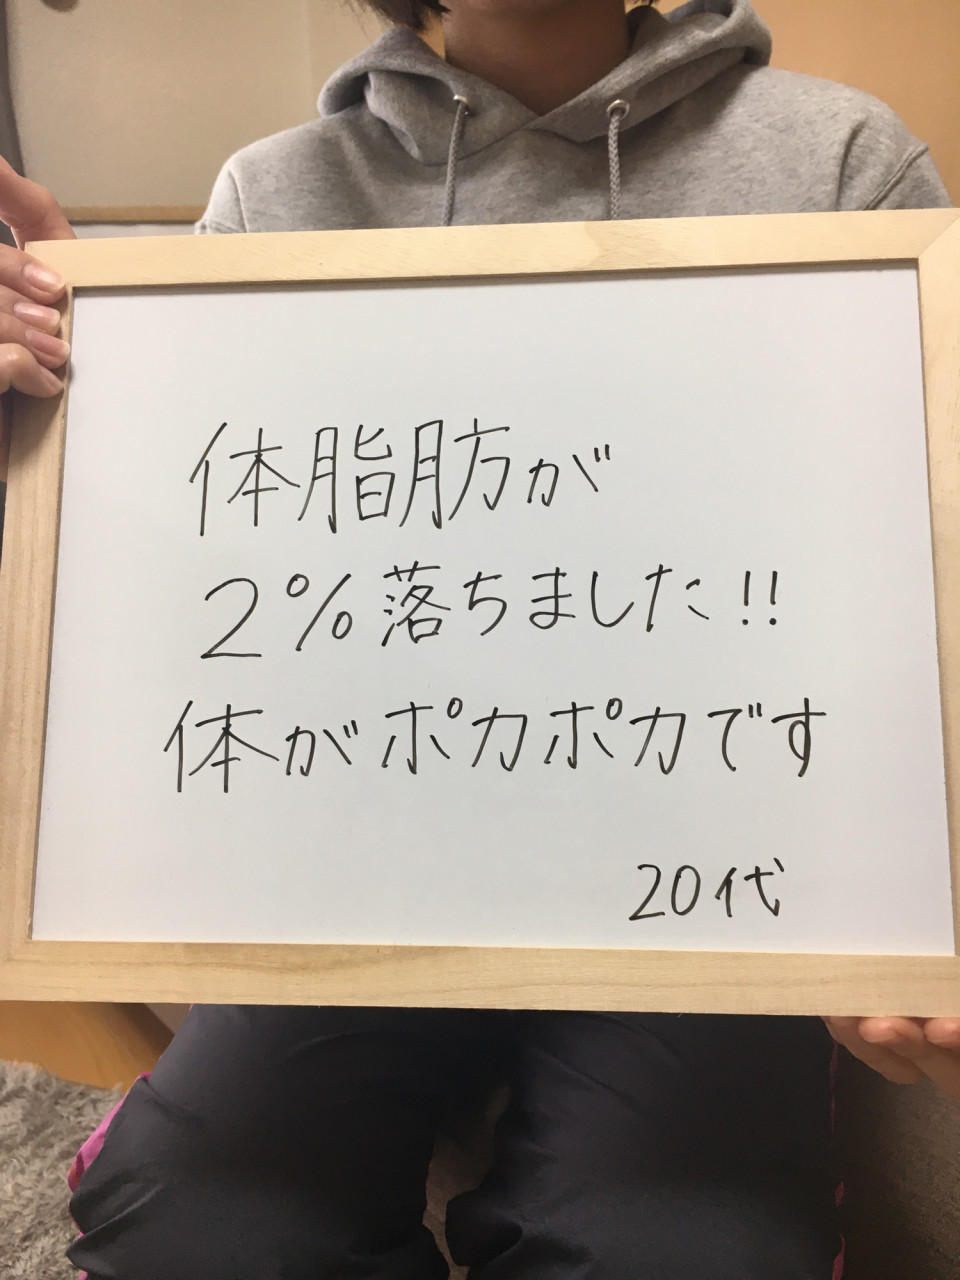 体脂肪が
2%落ちました!!
体がポカポカです
20代